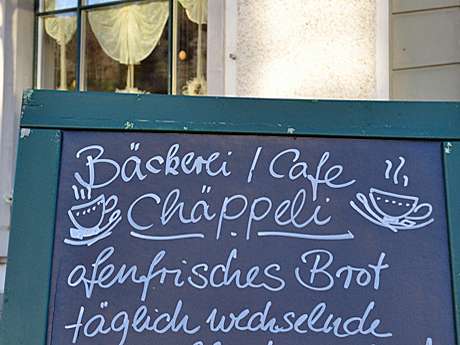 Bäckerei / Cafe
Chäppeli
ofenfrisches Brot
täglich wechselnde